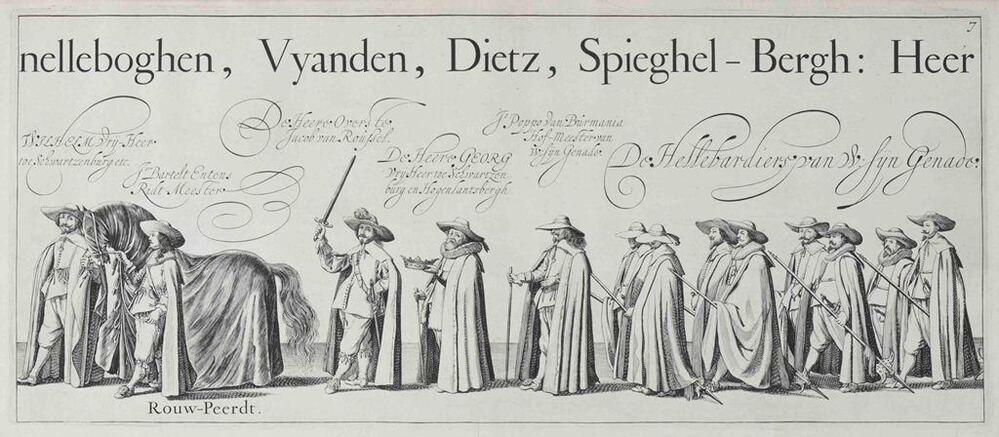 7
nelleboghen, Vyanden, Dietz, Spieghel-Bergh: Heer
WILHELM Vry-Heer
toe Schwartzenburg etc.
J. Bartelt Entens
Ridt Meester
De Heere Overste
Jacob van Roussel.
De Heere GEORG
Vry Heer toe Schwartzen
burg en Hogenlantsbergh
J. Poppo van Burmania
Hof-Meester van
W. syn Genade.
De Hellebardiers van W. syn Genade.
Rouw-Peerdt.